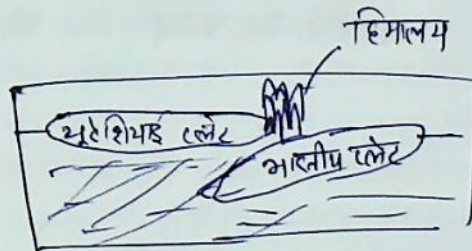 हिमालय
यूरेशियाई प्लेट
भारतीय प्लेट